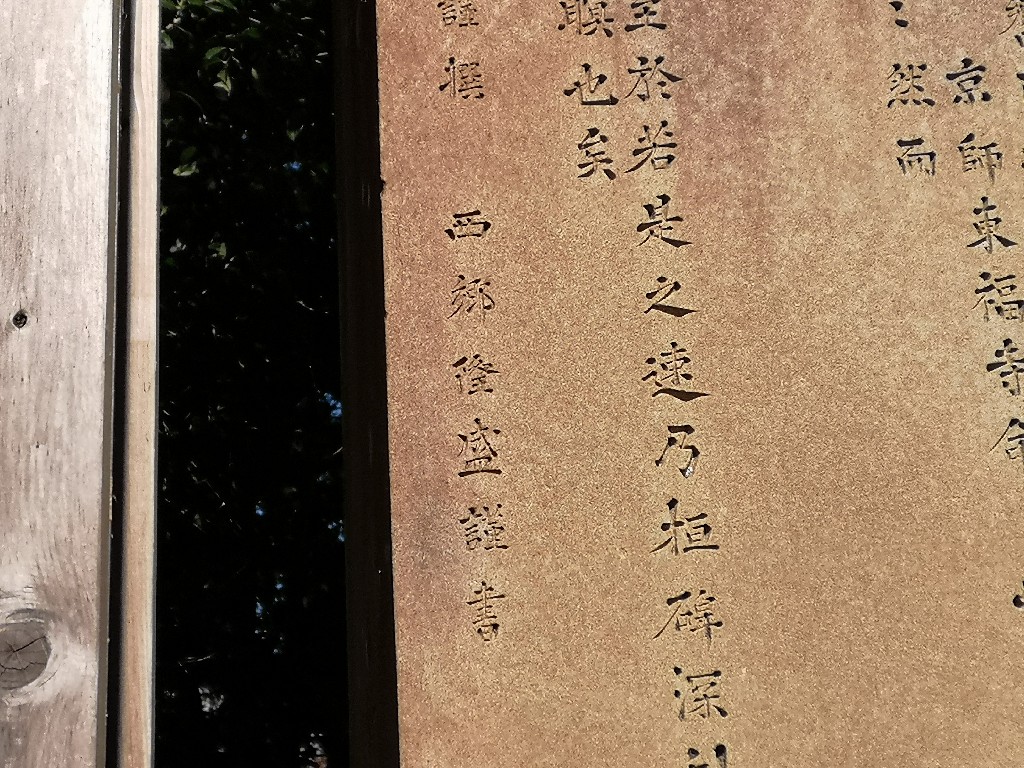 京師東福寺命
然而
於若是之速乃桓碑深
瞑也矣
謹撰　西郷隆盛謹書